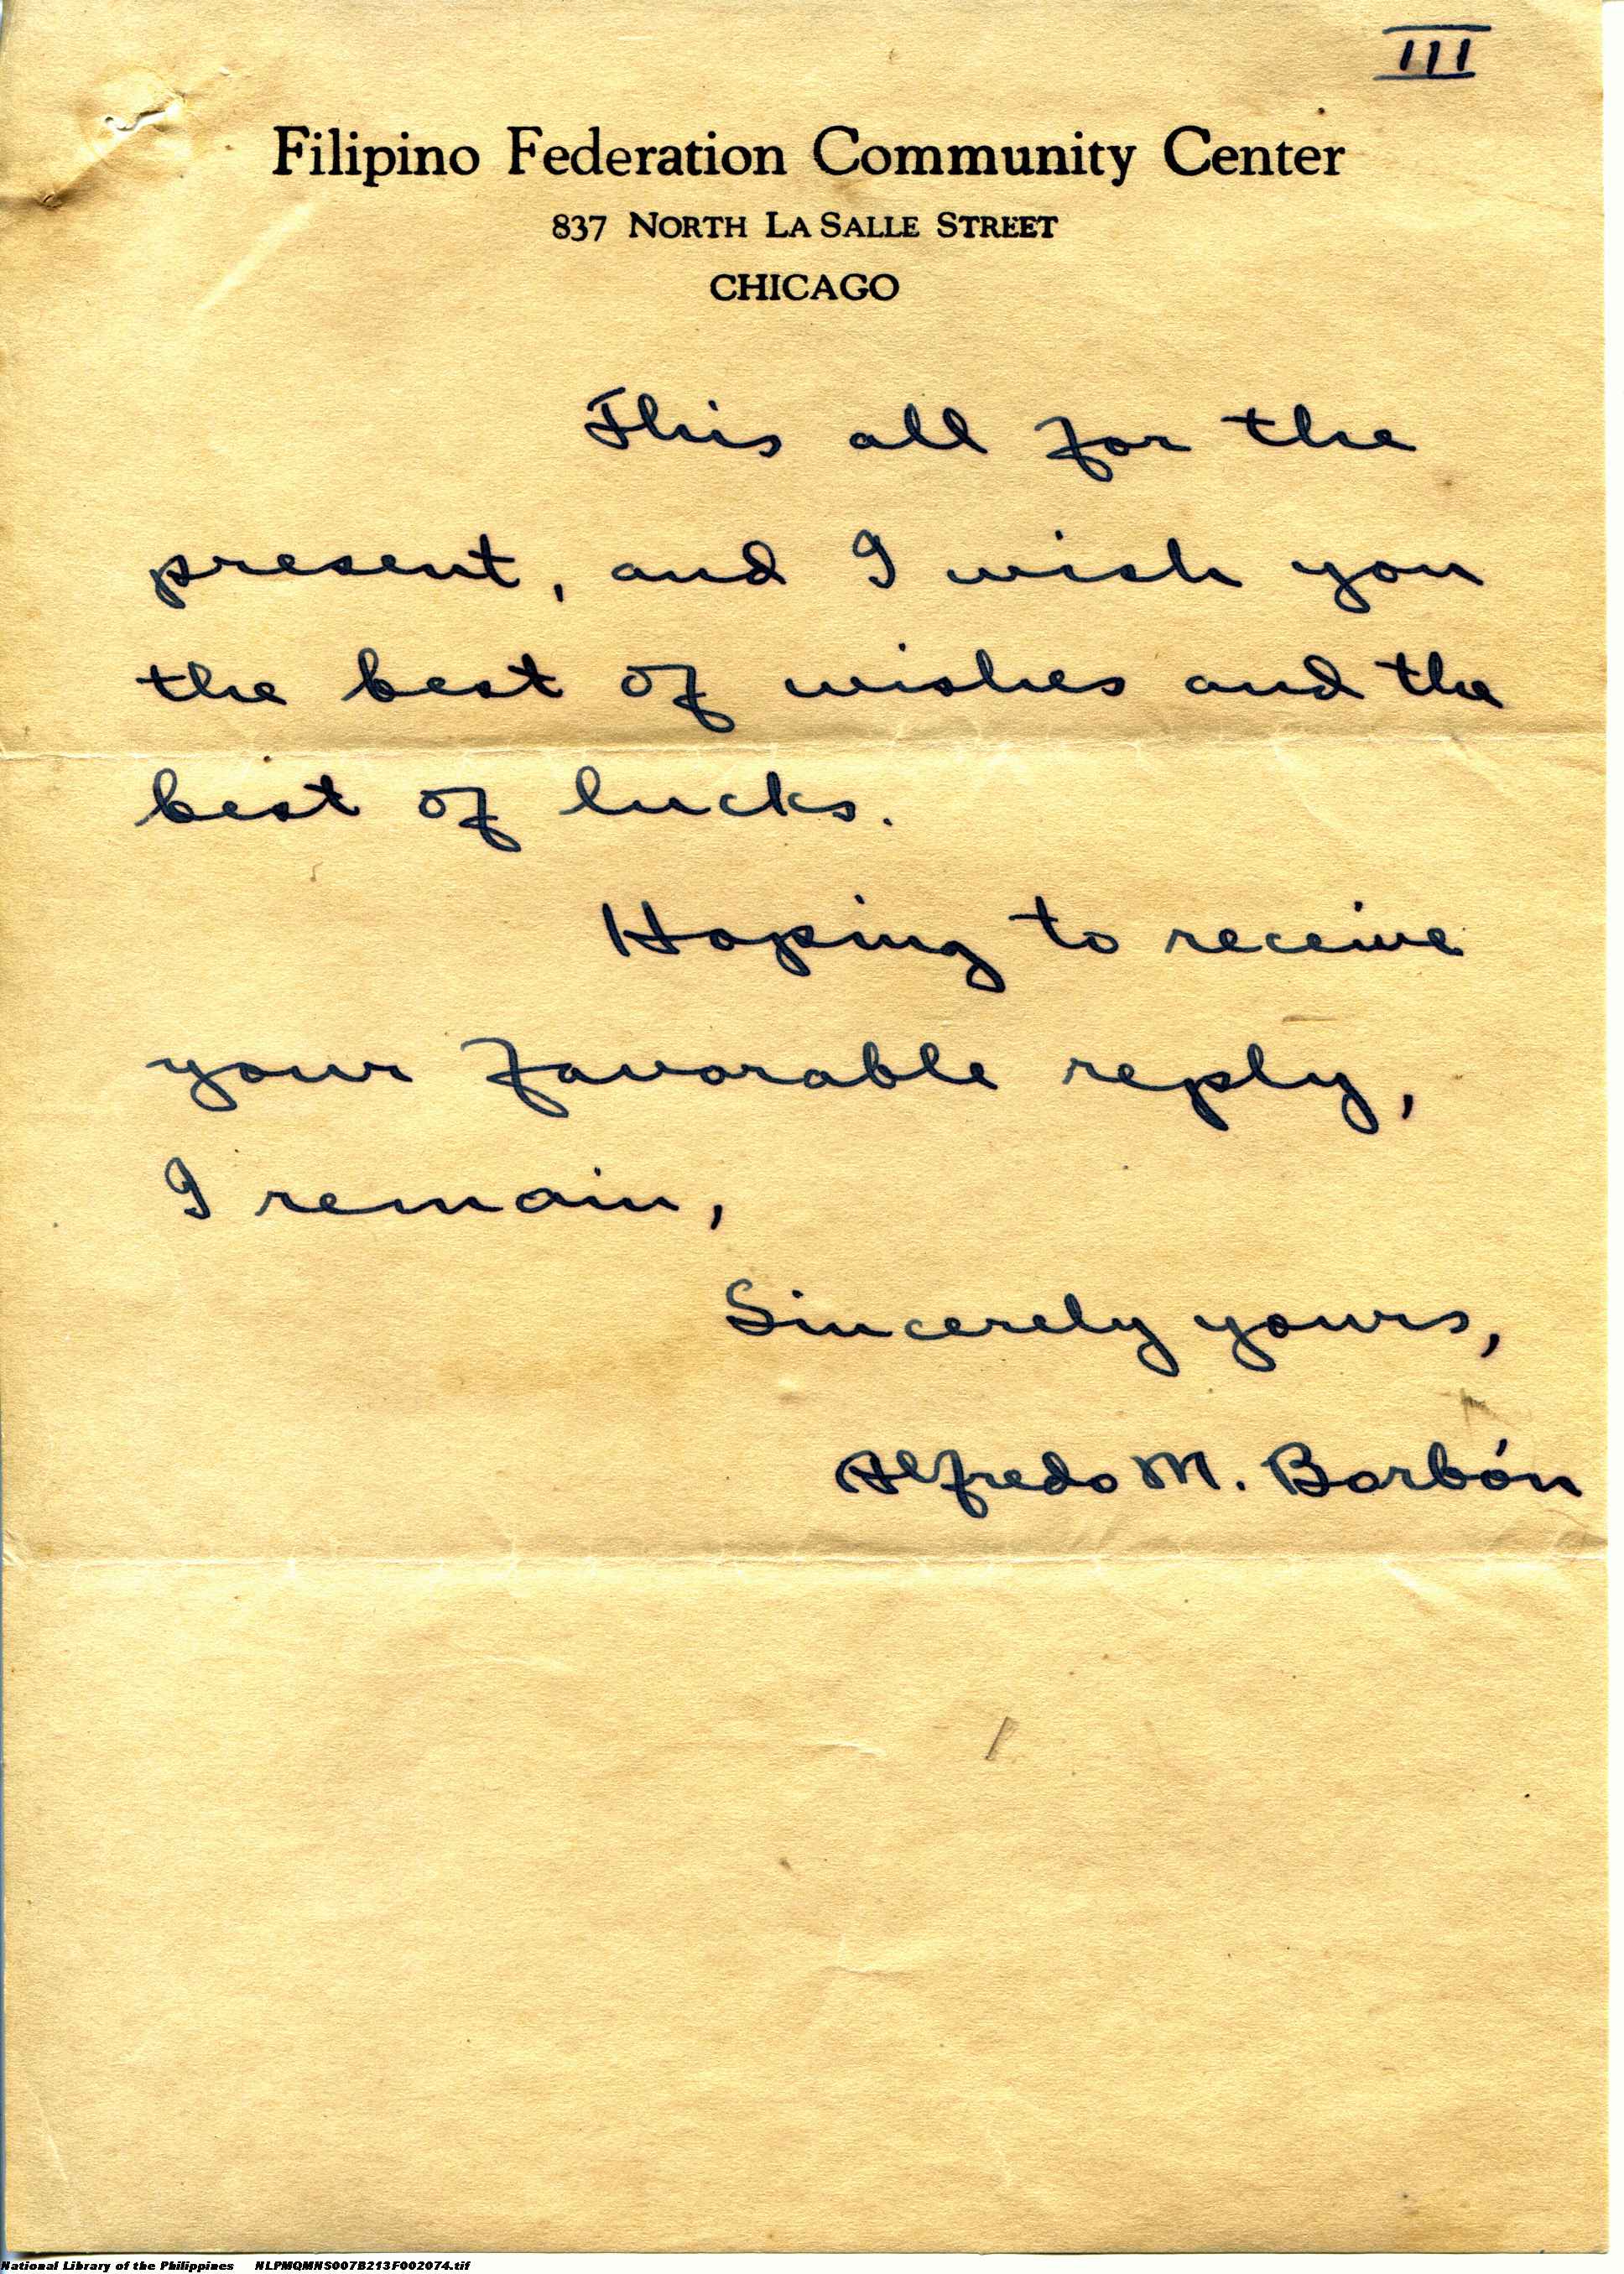 III
Filipino Federation Community Center
837 North La Salle Street
CHICAGO
This all for the
present, and I wish you
the best of wishes and the
best of lucks.
Hoping to receive
your favorable reply,
I remain,
Sincerely yours,
Alfredo M. Borbón
National Library of the Philippines NLPMQMNS007B213F002074.tif